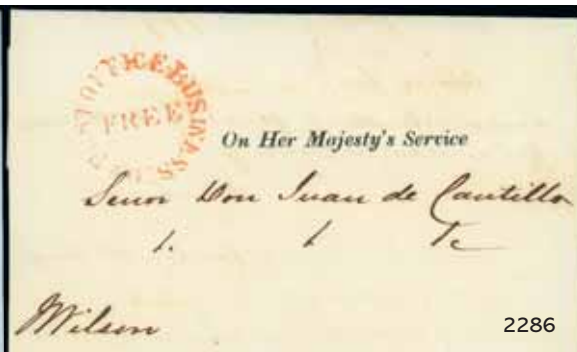 POST OFFICE BUSINESS
FREE
On Her Majesty's Service
Senor Don Juan de Cantillo
Wilson
2286